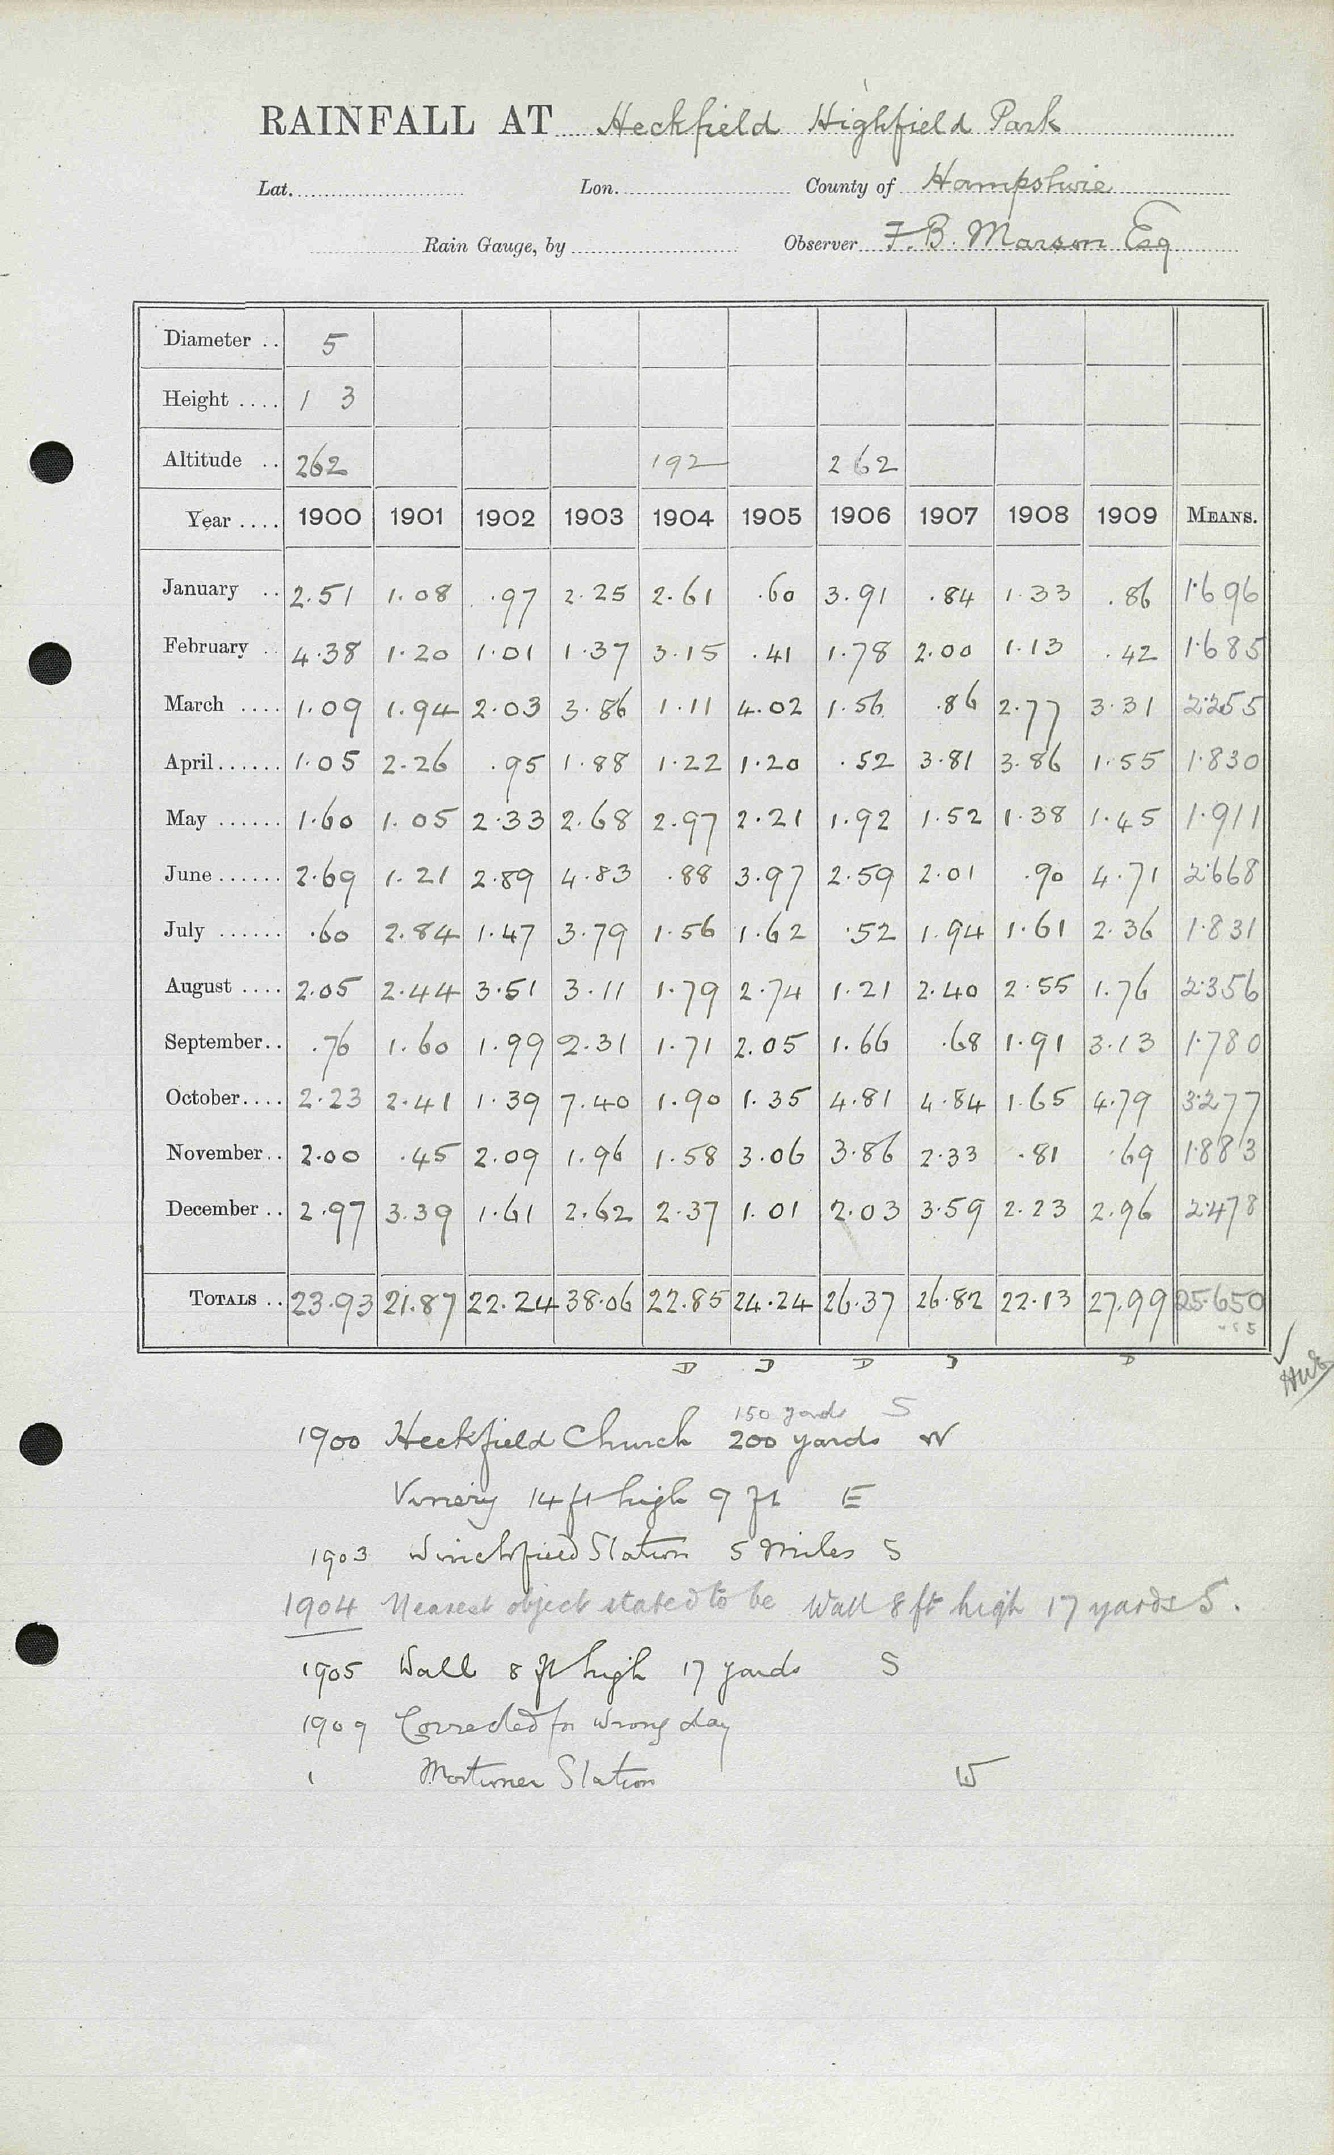 RAINFALL AT Heckfield Highfield Park
Lat. Lon. County of Hampshire
Rain Gauge, by Observer F.B. Marson Esq
Diameter .. 5
Height .... 1 3
Altitude .. 262 192 262
Year .... 1900 1901 1902 1903 1904 1905 1906 1907 1908 1909 MEANS.
January .. 2.51 1.08 .97 2.25 2.61 .60 3.91 .84 1.33 .86 1.696
February .. 4.38 1.20 1.01 1.37 3.15 .41 1.78 2.00 1.13 .42 1.685
March .... 1.09 1.94 2.03 3.86 1.11 4.02 1.56 .86 2.77 3.31 2.255
April...... 1.05 2.26 .95 1.88 1.22 1.20 .52 3.81 3.86 1.55 1.830
May ...... 1.60 1.05 2.33 2.68 2.97 2.21 1.92 1.52 1.38 1.45 1.911
June ...... 2.69 1.21 2.89 4.83 .88 3.97 2.59 2.01 .90 4.71 2.668
July ...... .60 2.84 1.47 3.79 1.56 1.62 .52 1.94 1.61 2.36 1.831
August .... 2.05 2.44 3.51 3.11 1.79 2.74 1.21 2.40 2.55 1.76 2.356
September.. .76 1.60 1.99 2.31 1.71 2.05 1.66 .68 1.91 3.13 1.780
October.... 2.23 2.41 1.39 7.40 1.90 1.35 4.81 4.84 1.65 4.79 3.277
November.. 2.00 .45 2.09 1.96 1.58 3.06 3.86 2.33 .81 .69 1.883
December .. 2.97 3.39 1.61 2.62 2.37 1.01 2.03 3.59 2.23 2.96 2.478
TOTALS .. 23.93 21.87 22.24 38.06 22.85 24.24 26.37 26.82 22.13 27.99 25.650
D D D D D
150 yards S
1900 Heckfield Church 200 yards W
Vinery 14 ft high 9 ft E
1903 Winchfield Station 5 Miles S
1904 Nearest object stated to be Wall 8 ft high 17 yards S.
1905 Wall 8 ft high 17 yards S
1909 Corrected for wrong day
Mortimer Station W